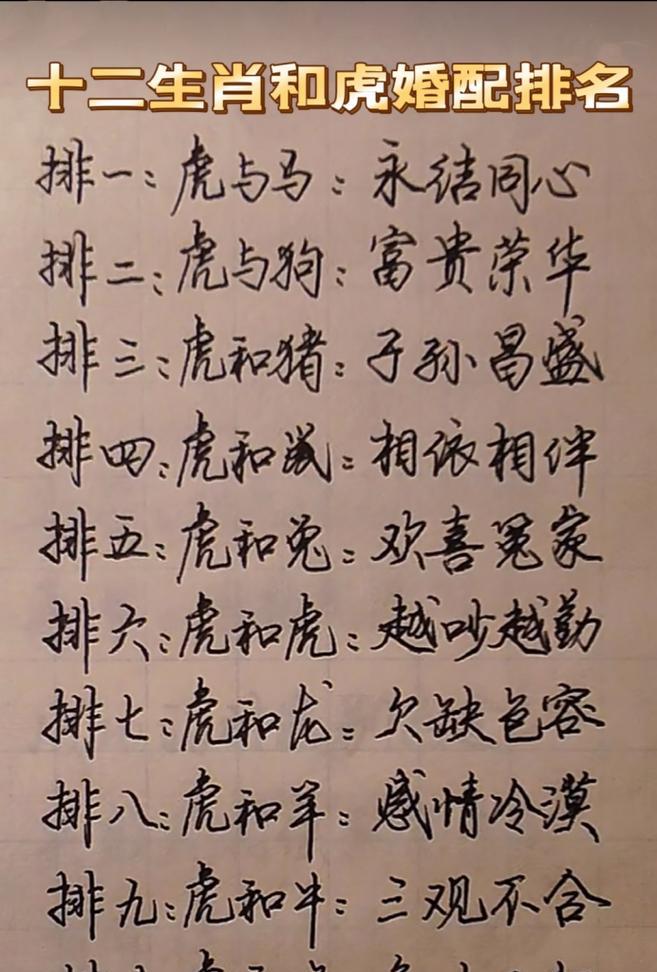 十二生肖和虎婚配排名
排一:虎与马:永结同心
排二:虎与狗:富贵荣华
排三:虎和猪:子孙昌盛
排四:虎和鼠:相依相伴
排五:虎和兔:欢喜冤家
排六:虎和虎:越吵越勤
排七:虎和龙:欠缺包容
排八:虎和羊:感情冷漠
排九:虎和牛:三观不合